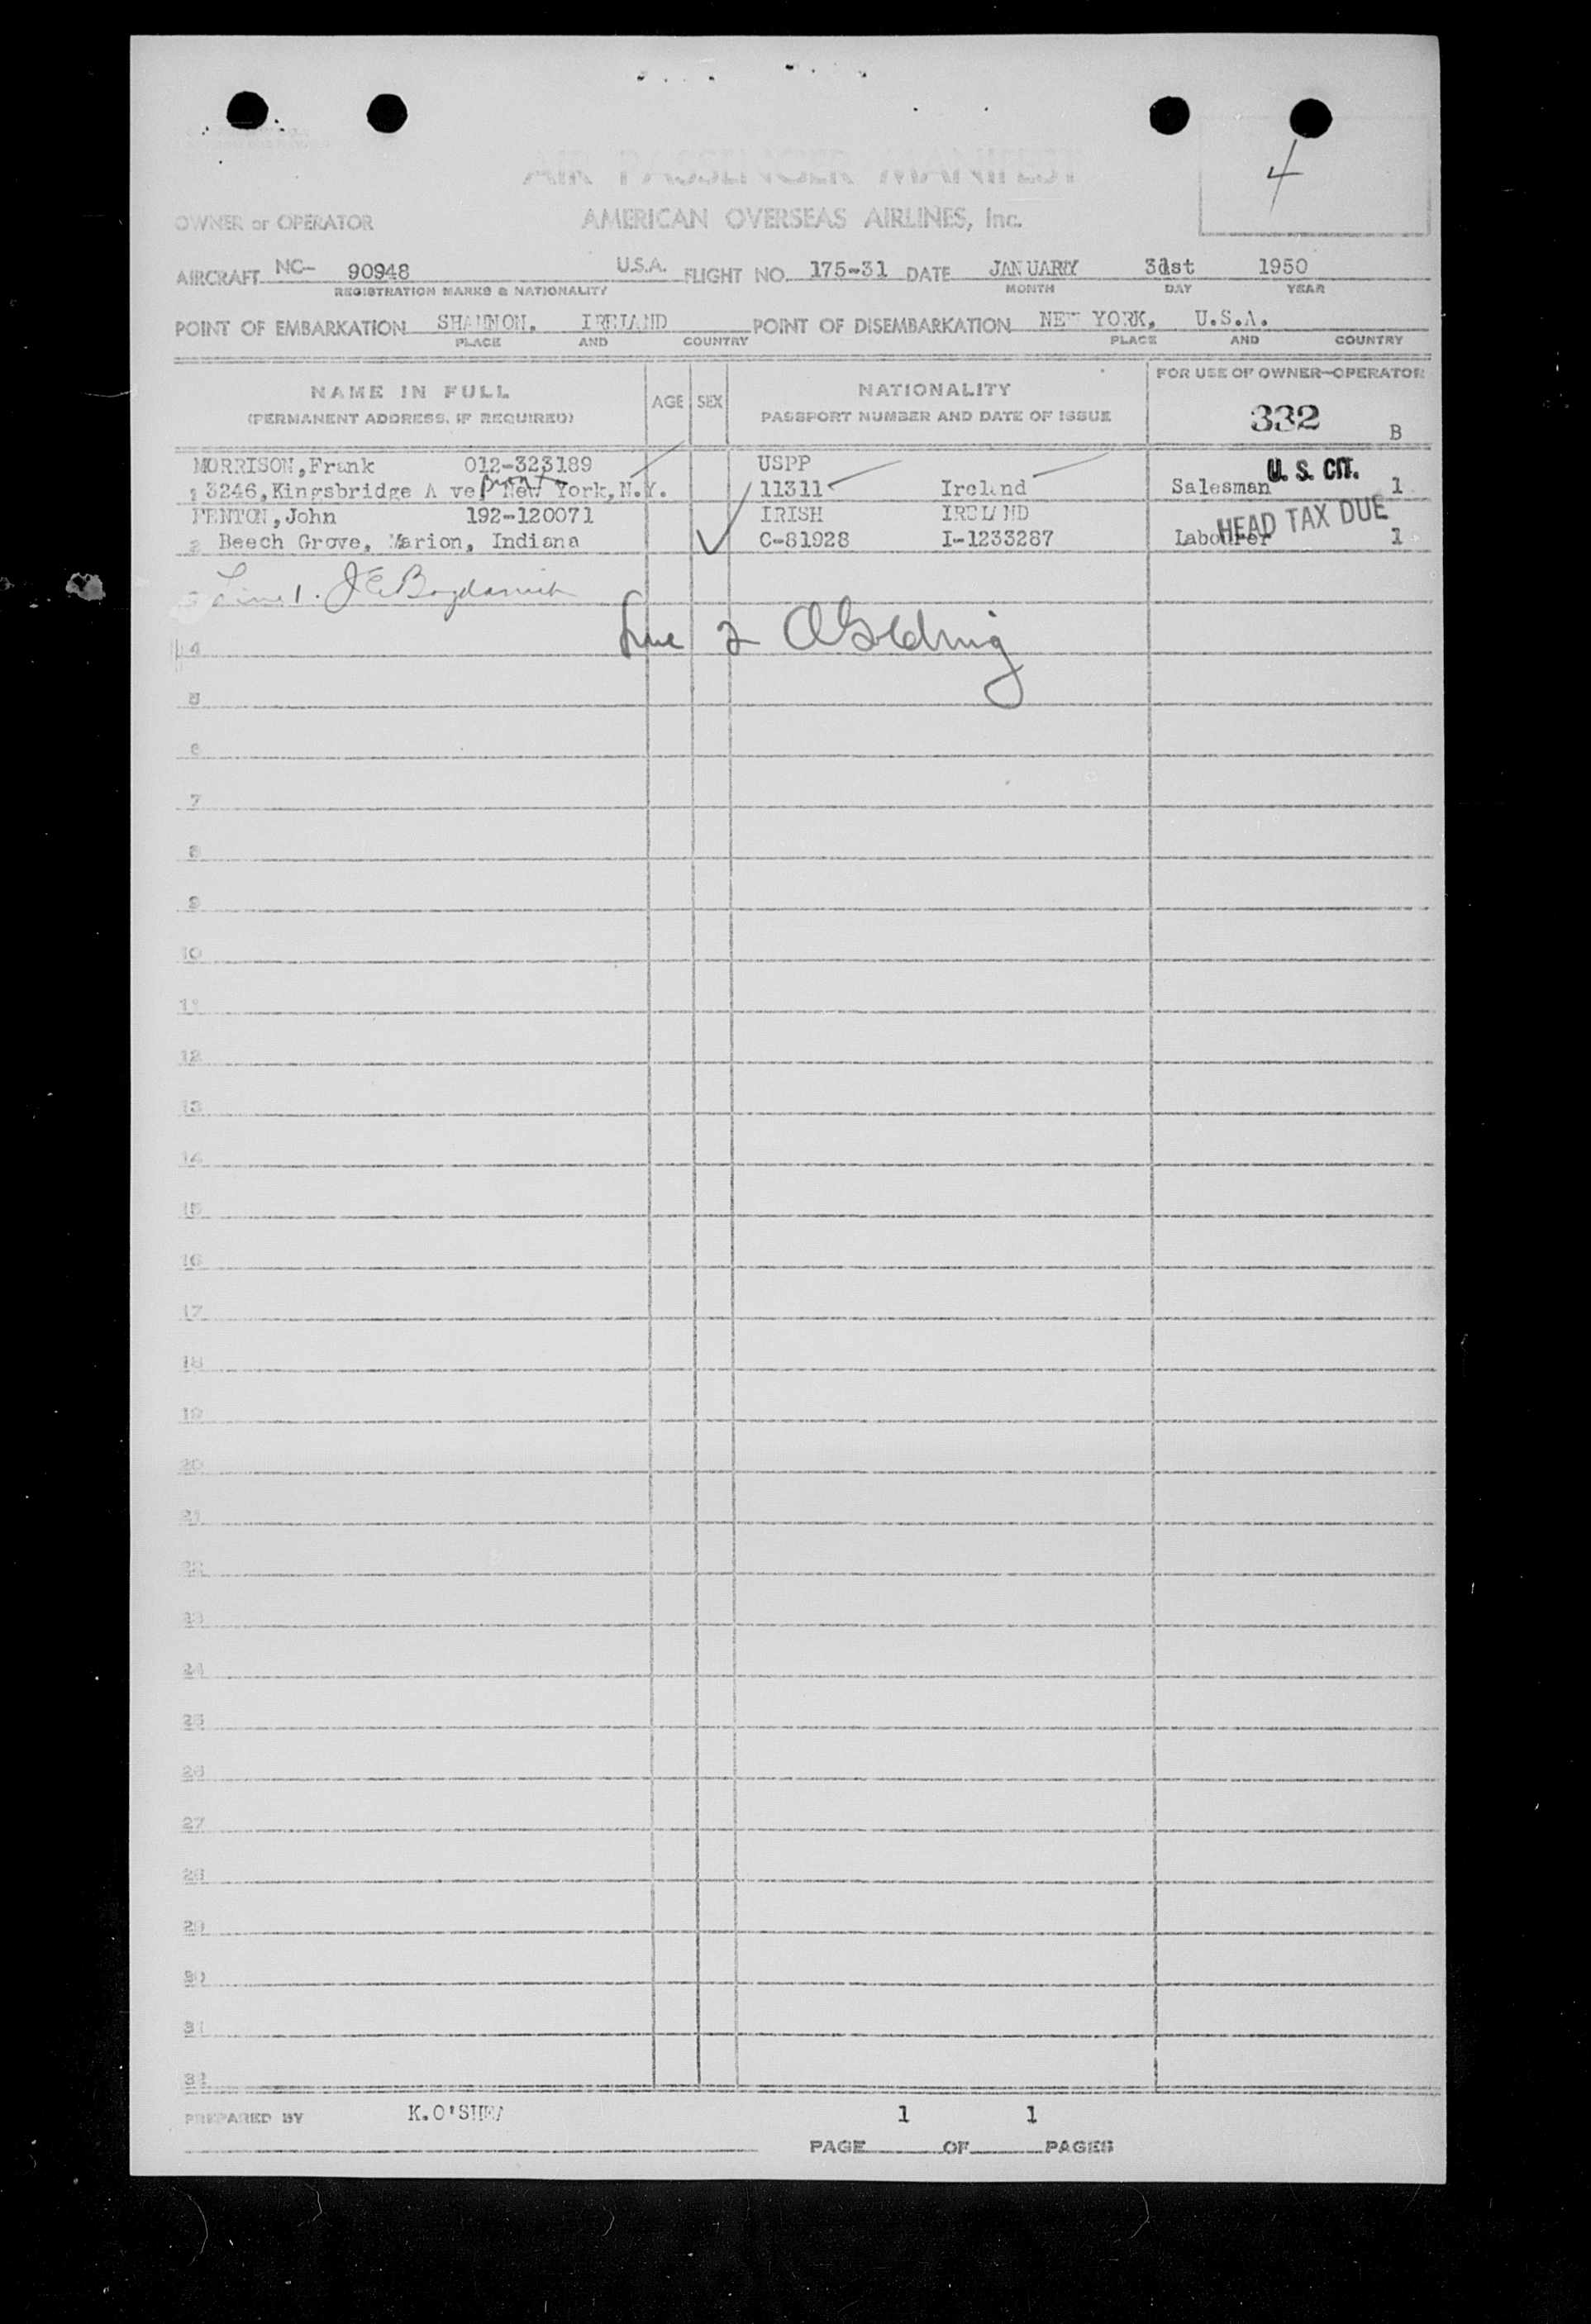 4
AIR PASSENGER MANIFEST
OWNER or OPERATOR AMERICAN OVERSEAS AIRLINES, Inc.
AIRCRAFT NC- 90948 U.S.A. FLIGHT NO. 175-31 DATE JANUARY 31st 1950
REGISTRATION MARKS & NATIONALITY MONTH DAY YEAR
POINT OF EMBARKATION SHANNON, IRELAND POINT OF DISEMBARKATION NEW YORK, U.S.A.
PLACE AND COUNTRY PLACE AND COUNTRY
NAME IN FULL
(PERMANENT ADDRESS, IF REQUIRED)
AGE SEX
NATIONALITY
PASSPORT NUMBER AND DATE OF ISSUE
FOR USE OF OWNER-OPERATOR
332 B
MORRISON, Frank 012-323189 USPP U. S. CIT.
1 3246, Kingsbridge A ve Bronx New York, N.Y. 11311 Ireland Salesman 1
FENTON, John 192-120071 IRISH IRELAND HEAD TAX DUE
2 Beech Grove, Marion, Indiana C-81928 I-1233287 Labourer 1
Line 1. J E
Line 2
4
5
6
7
8
9
10
11
12
13
14
15
16
17
18
19
20
21
22
23
24
25
26
27
28
29
30
31
32
PREPARED BY K. O'SHEA 1 1
PAGE OF PAGES